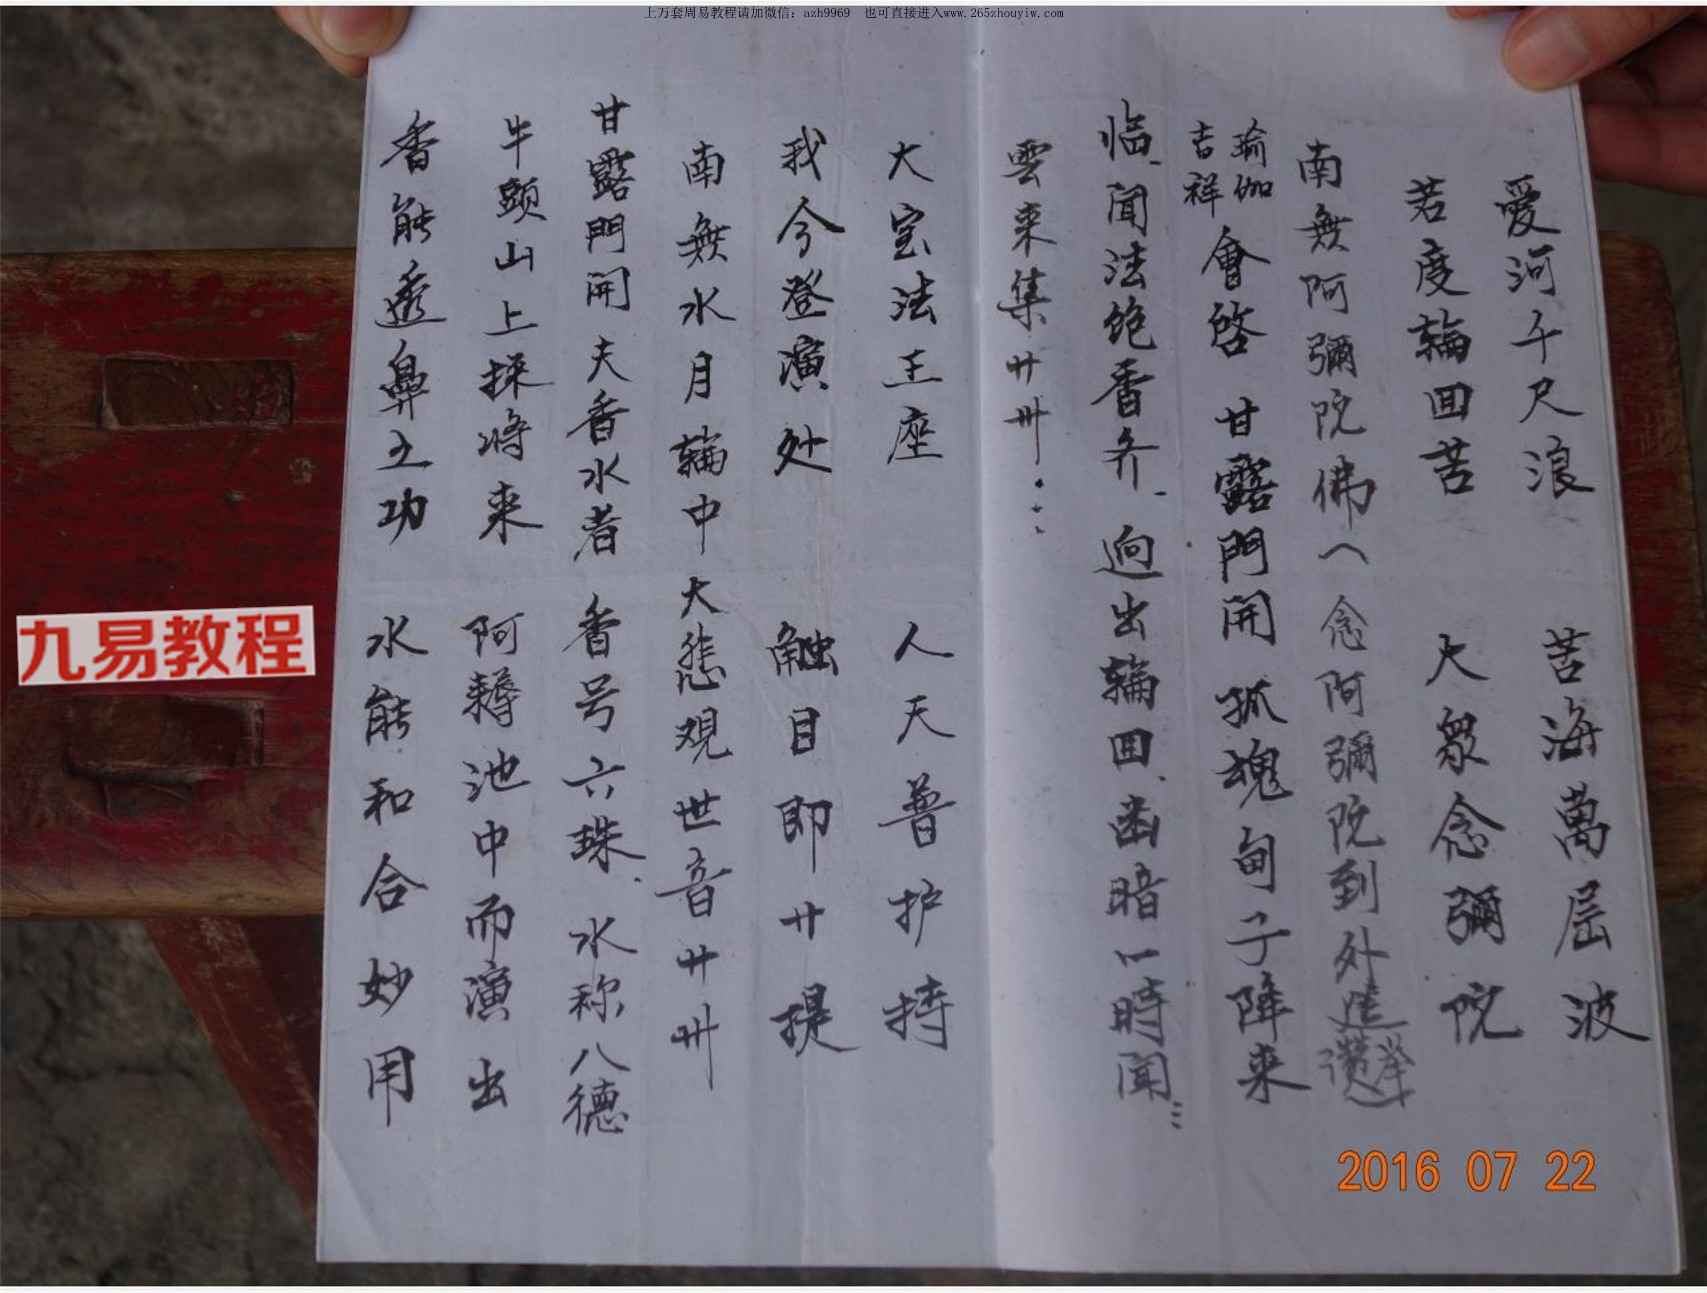 上万套周易教程请加微信：azh9969　也可直接进入www.265zhouyiw.com
愛河千尺浪　苦海萬层波
若度輪回苦　大衆念彌陀
南無阿彌陀佛 念阿彌陀到外
瑜伽
吉祥
會啓 甘露門開 孤魂 子降来
临 闻法 香 出輪回 幽暗一時闻
雲来集廾卅
大宝法王座　人天普护持
我今登演处　触目即廾提
南無水月輪中大悲观世音廾卅
甘露門開 夫香水者 香号六珠 水称八德
牛頭山上採将来　阿耨池中而演出
香能透鼻之功　水能和合妙用
九易教程
2016 07 22